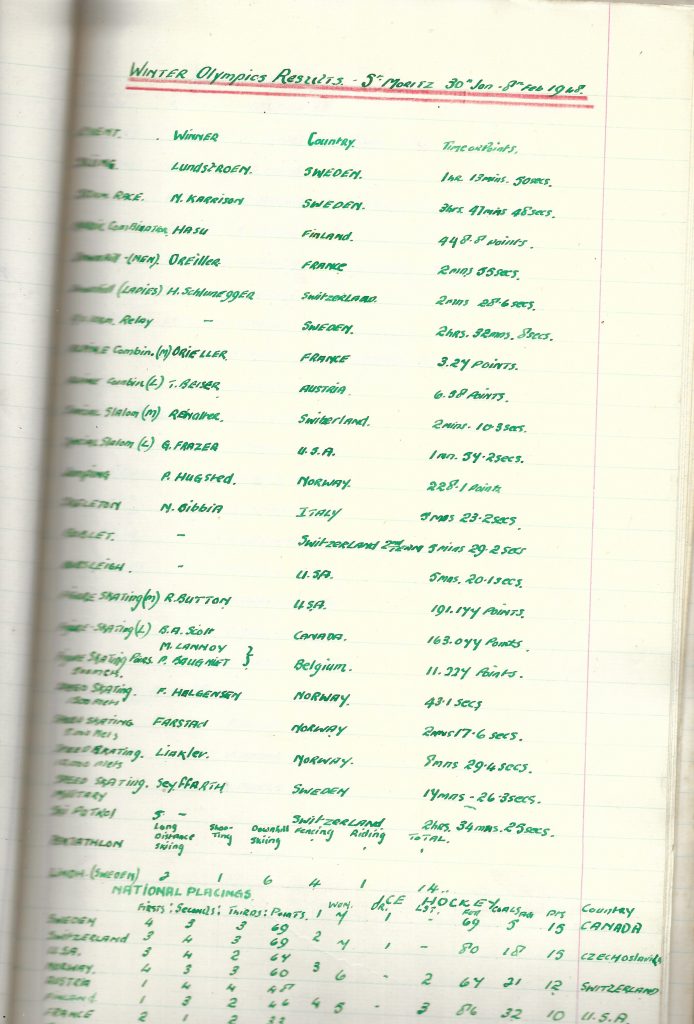 WINTER Olympics Results. - St MORITZ 30th Jan - 8th Feb 1948.
EVENT. WINNER Country. Time or Points.
SKIING. LUNDSTROEM. SWEDEN. 1hr. 13mins. 50secs.
RACE. N. KARRISON SWEDEN. 3hrs. 47mins 48secs.
Combination HASU FINLAND. 448.8 Points.
Downhill - (MEN). OREILLER FRANCE 2mins 55secs.
Downhill (LADIES) H. Schlunegger Switzerland. 2mins 28.6secs.
Relay - SWEDEN. 2hrs. 32mns. 8secs.
ALPINE Combin. (M) ORIELLER FRANCE 3.27 POINTS.
ALPINE Combin (L) T. BEISER AUSTRIA 6.58 POINTS.
SPECIAL Slalom (M) Switzerland. 2mins. 10.3secs.
SPECIAL Slalom (L) G. FRAZER U.S.A. 1mn. 57.2secs.
JUMPING P. HUGSTED. NORWAY. 228.1 Points
SKELETON N. Bibbia ITALY 5mns 23.2secs.
BOBLET. - Switzerland 2nd TEAM 5mins 29.2secs
BOBSLEIGH. - U.S.A. 5mns. 20.1secs.
FIGURE SKATING (M) R. BUTTON U.S.A. 191.177 POINTS.
FIGURE-SKATING (L) B.A. Scott CANADA. 163.077 Points.
M. LANNOY
FIGURE SKATING Pairs. P. BAUGNIET } Belgium. 11.227 Points.
500 MCH.
SPEED SKATING. F. HELGENSEN NORWAY 43.1 secs
1500 MCH
SPEED SKATING FARSTAD NORWAY 2mns 17.6 secs.
5,000 Mets
SPEED SKATING. Liaklev. NORWAY. 8mns 29.4secs.
10,000 Mets
SPEED SKATING. Seyffarth SWEDEN 17mns - 26.3secs.
MILITARY
SKI PATROL S - SWITZERLAND 2hrs. 34mns. 25secs.
PENTATHLON Long Distance Skiing Shooting Downhill Skiing Fencing Riding TOTAL.
LINDH. (SWEDEN) 2 1 6 4 1 14..
NATIONAL PLACINGS. ICE HOCKEY
Firsts: Seconds: Thirds: Points. Won. Dr. Lst. For Goals Ag Pts Country
SWEDEN 4 3 3 69 1 7 1 - 69 5 15 CANADA
SWITZERLAND 3 4 3 69 2 7 1 - 80 18 15 CZECHOSLOVAKIA
U.S.A. 3 4 2 64
NORWAY. 4 3 3 60 3 6 - 2 67 21 12 SWITZERLAND
AUSTRIA 1 4 4 48
FINLAND 1 3 2 46 4 5 - 3 86 32 10 U.S.A
FRANCE 2 1 2 22